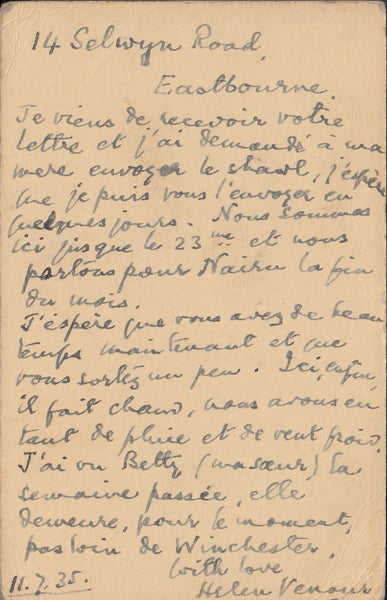 14 Selwyn Road,
Eastbourne.
Je viens de recevoir votre
lettre et j'ai demandé à ma
mere envoyer le shawl, j'éspère
que je puis vous l'envoyer en
quelques jours. Nous sommes
ici jusque le 23 me et nous
partons pour Nairn la fin
du mois.
J'éspère que vous avez de beau
temps maintenant et que
vous sortez un peu. Ici, enfin,
il fait chaud, nous avons eu
tant de pluie et de vent froid.
J'ai vu Betty (ma sœur) la
semaine passée, elle
demeure, pour le moment,
pas loin de Winchester.
With love
Helen Venour
11.7.35.